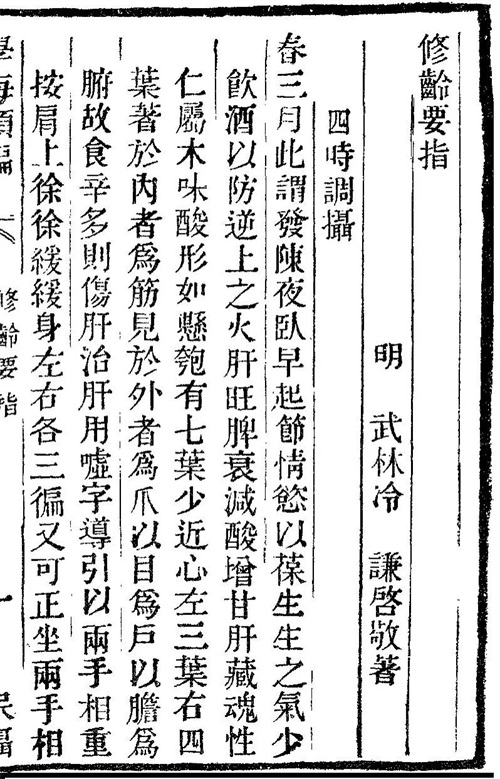 修齡要指
明　武林冷　謙啓敬著
四時調攝
春三月此謂發陳夜臥早起節情慾以葆生生之氣少
飲酒以防逆上之火肝旺脾衰減酸增甘肝藏魂性
仁屬木味酸形如懸匏有七葉少近心左三葉右四
葉著於內者爲筋見於外者爲爪以目爲戶以膽爲
腑故食辛多則傷肝治肝用噓字導引以兩手相重
按肩上徐徐緩緩身左右各三徧又可正坐兩手相
學海類編
修齡要指
一